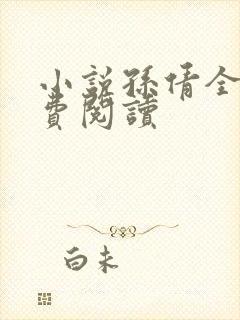 小說孫倩全
費閱讀
白未